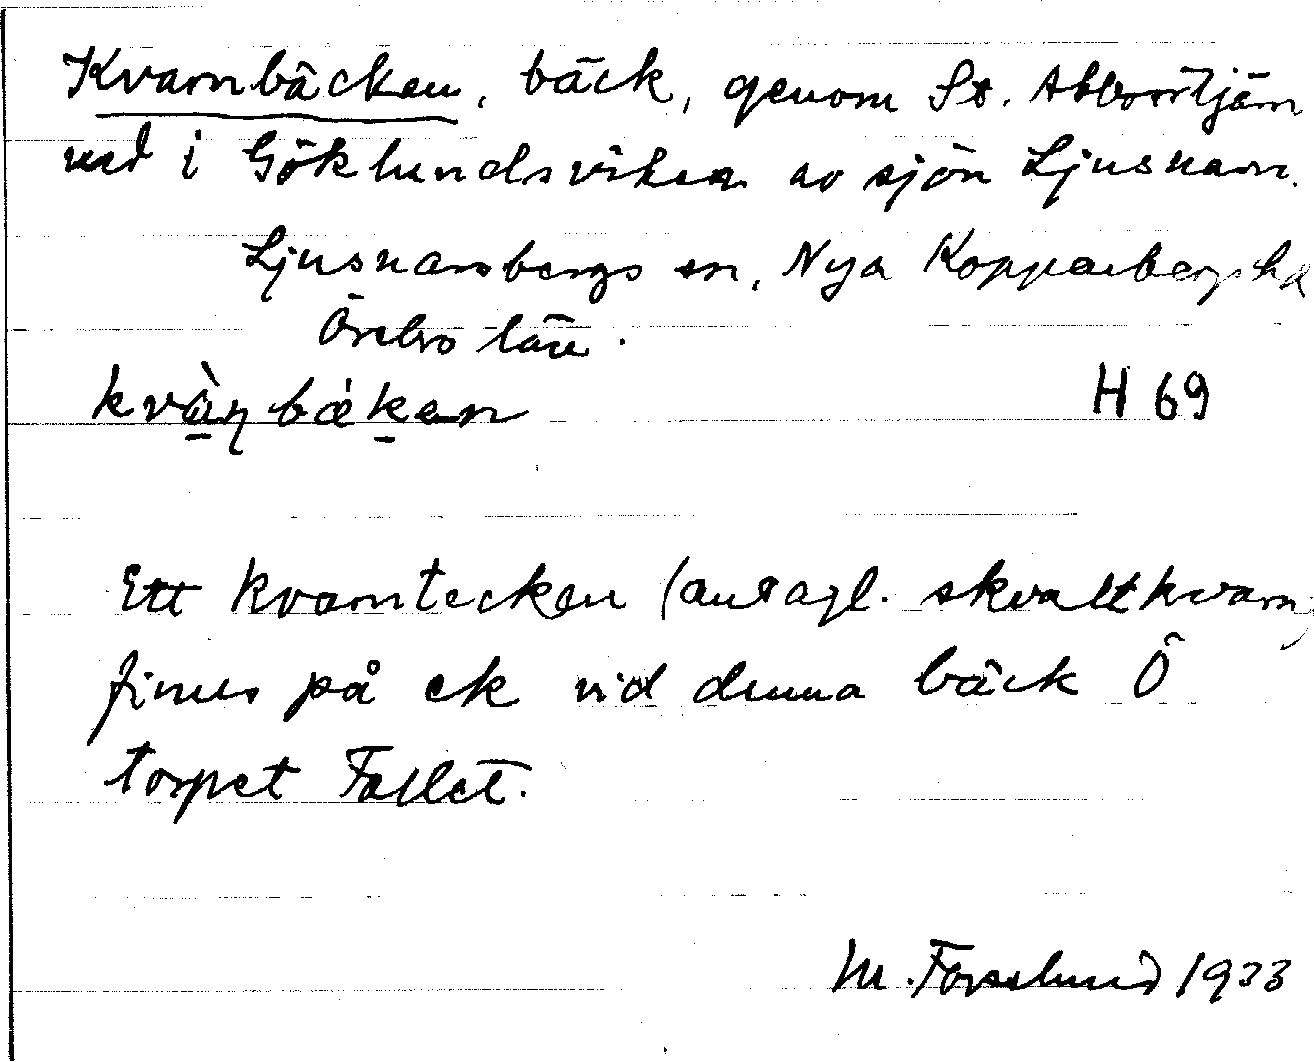 Kvarnbäcken, bäck, genom St. Abborrtjärn
ned i Göklundsviken av sjön Ljusnarn.
Ljusnarsbergs sn, Nya Kopparbergs hd
Örebro län.
kvàṇbækan H 69
Ett kvarntecken (antagl. skvaltkvarn)
finnes på ek vid denna bäck Ö
torpet Fallet.
M. Forslund 1933